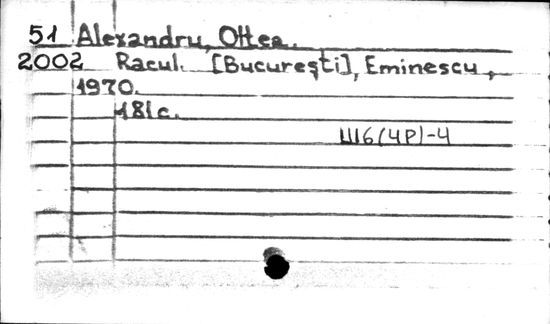 51 Alexandru, Oltea.
2002 Racul. [București], Eminescu,
1970.
181 c.
Ш6(4Р)-4